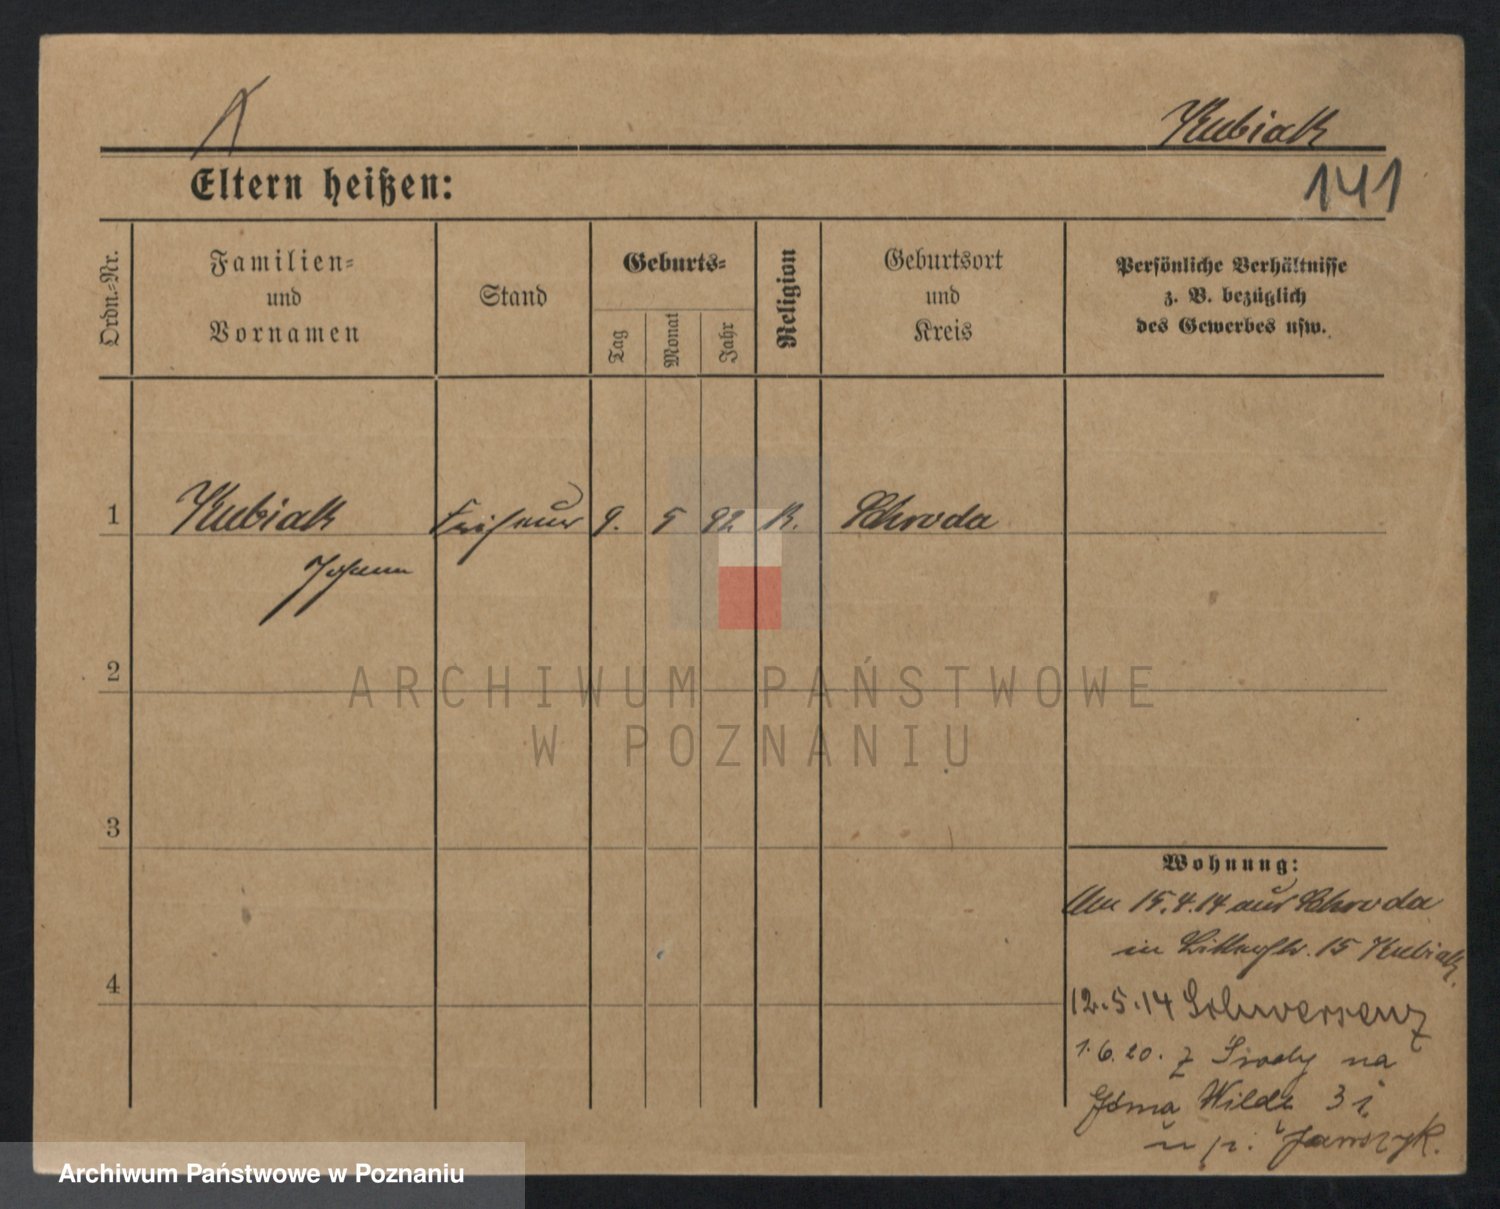 Kubiak
141
Eltern heißen:
Ordn.-Nr.
Familien-
und
Vornamen
Stand
Geburts-
Tag
Monat
Jahr
Religion
Geburtsort
und
Kreis
Persönliche Verhältnisse
z. B. bezüglich
des Gewerbes usw.
1
Kubiak
Friseur
9.
5
92
K.
Schroda
Johann
2
ARCHIWUM PAŃSTWOWE
W POZNANIU
3
Wohnung:
Am 15.4.14 aus Schroda
in 15 Kubiak.
4
12.5.14 Schwersenz
1.6.20. z Środy na
Wilda 3
u p.
Archiwum Państwowe w Poznaniu